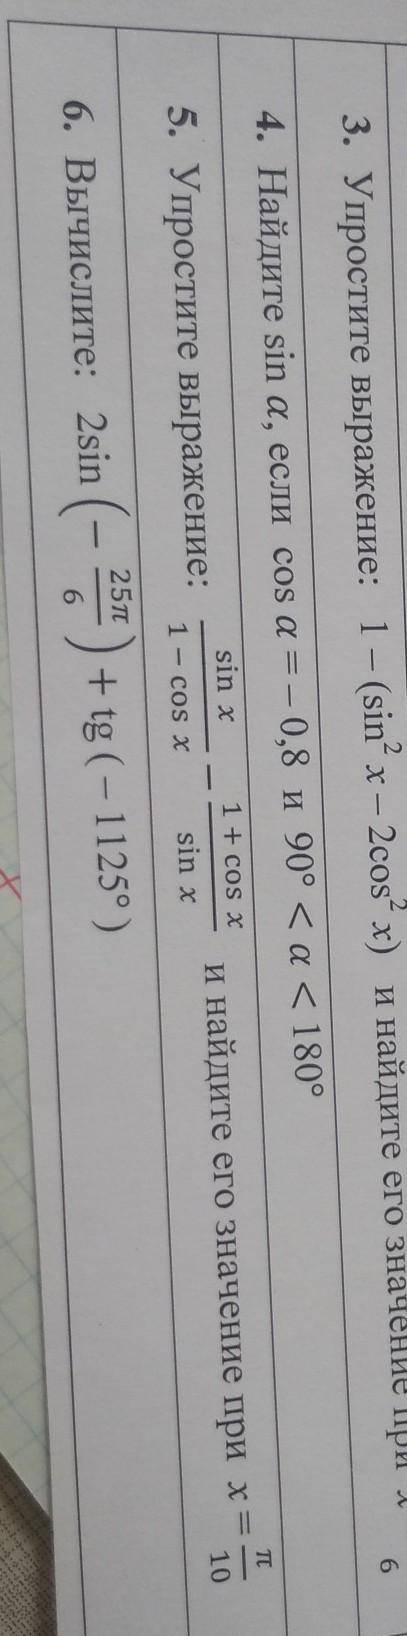 3. Упростите выражение: 1 – (sin² x – 2cos² x) и найдите его значение при x 6
4. Найдите sin α, если cos α = – 0,8 и 90° < α < 180°
5. Упростите выражение: sin x / (1 – cos x) – (1 + cos x) / sin x и найдите его значение при x = π/10
6. Вычислите: 2sin (– 25π/6) + tg (– 1125°)